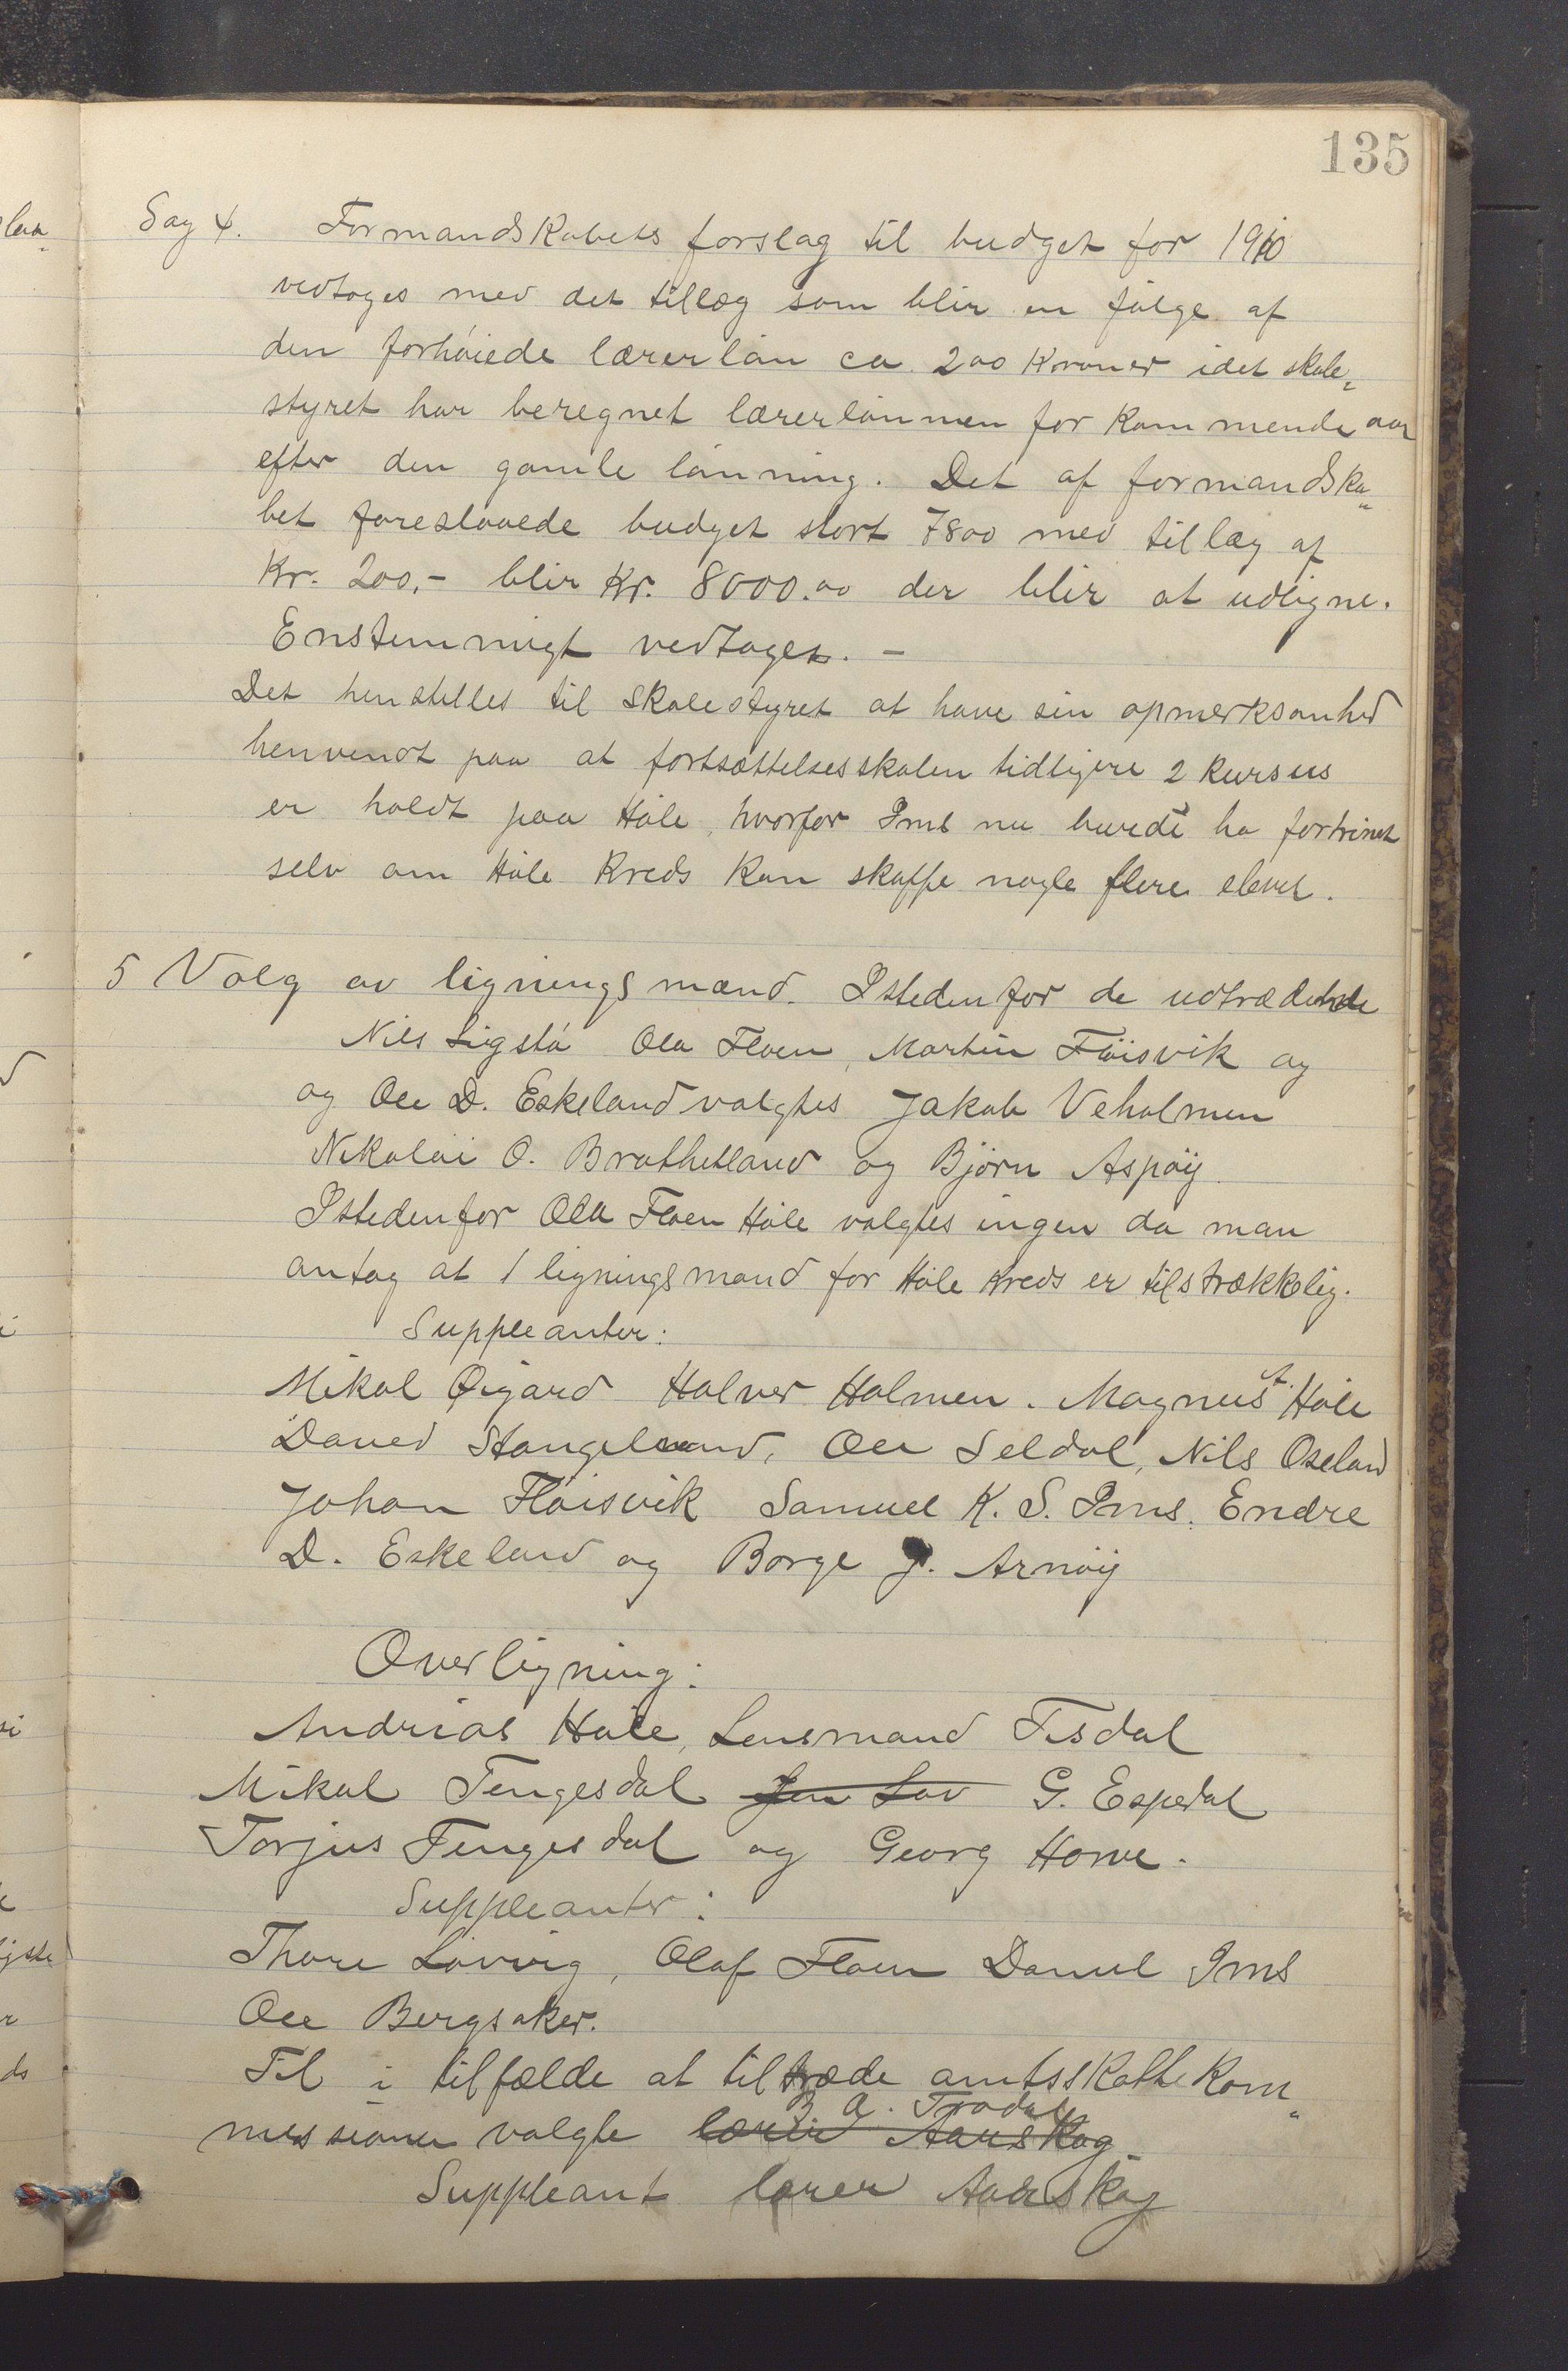 135
Sag 4. Formandskabets forslag til budget for 1910
vedtoges med det tillæg som blir en følge af
den forhøiede lærerløn ca. 200 Kroner idet skole„
styret har beregnet lærerlønnen for kommende aar
efter den gamle lønning. Det af formandska„
bet foreslaaede budget stort 7800 med tillæg af
Kr. 200,- blir Kr. 8000.00 der blir at udligne.
Enstemmigt vedtaget. –
Det henstilles til skolestyret at have sin opmerksomhed
henvendt paa at fortsættelsesskolen tidligere 2 kursus
er holdt paa Høle, hvorfor Ims nu burde ha fortrinet
selv om Høle Kreds kan skaffe nogle flere elever.
5 Valg av ligningsmænd. Istedenfor de udtrædende
Nils Ligstø Ola Floen, Martin Fløisvik og
og Ole D. Eskeland valgtes Jakob Veholmen
Nikolai O. Bratthetland og Bjørn Aspøy
Istedenfor Ola Floen Høle valgtes ingen da man
antog at 1 ligningsmand for Høle Kreds er tilstrækkelig.
Suppleanter:
Mikal Øigard Halver Holmen. Magnus A. Høle
Daned Stangeland, Ole Seldal, Nils Oseland
Johan Fløisvik Samuel K. S. Ims. Endre
D. Eskeland og Borge J. Arnøy
Overligning:
Andreas Høle, Lensmand Tisdal
Mikal Tengesdal Jen Lov G. Espedal
Torjus Tengesdal og Georg Horve.
Suppleanter:
Thore Løvvig, Olaf Floen Daniel Ims
Ole Bergsaker.
Til i tilfælde at tiltræde amtsskattekom„
B. A. Trodal
missionen valgte lærer Aarskog
Suppleant lærer Aarskog